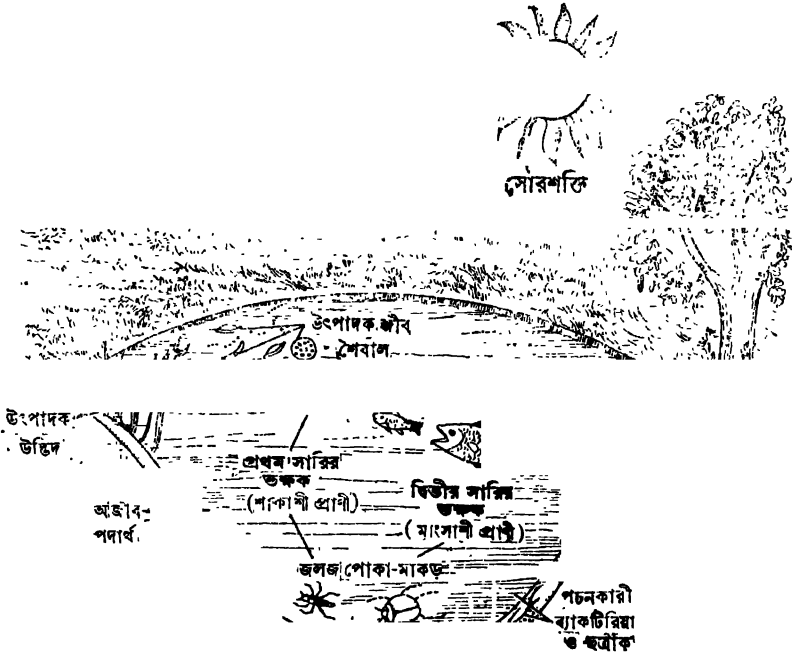 সৌরশক্তি
উৎপাদক জীব
শৈবাল
উৎপাদক
উদ্ভিদ
প্রথম সারির
ভক্ষক
(শাকাশী প্রাণী)
দ্বিতীয় সারির
ভক্ষক
(মাংসাশী প্রাণী)
অজীব-
পদার্থ
জলজ পোকা-মাকড়
পচনকারী
ব্যাকটিরিয়া
ও ছত্রাক